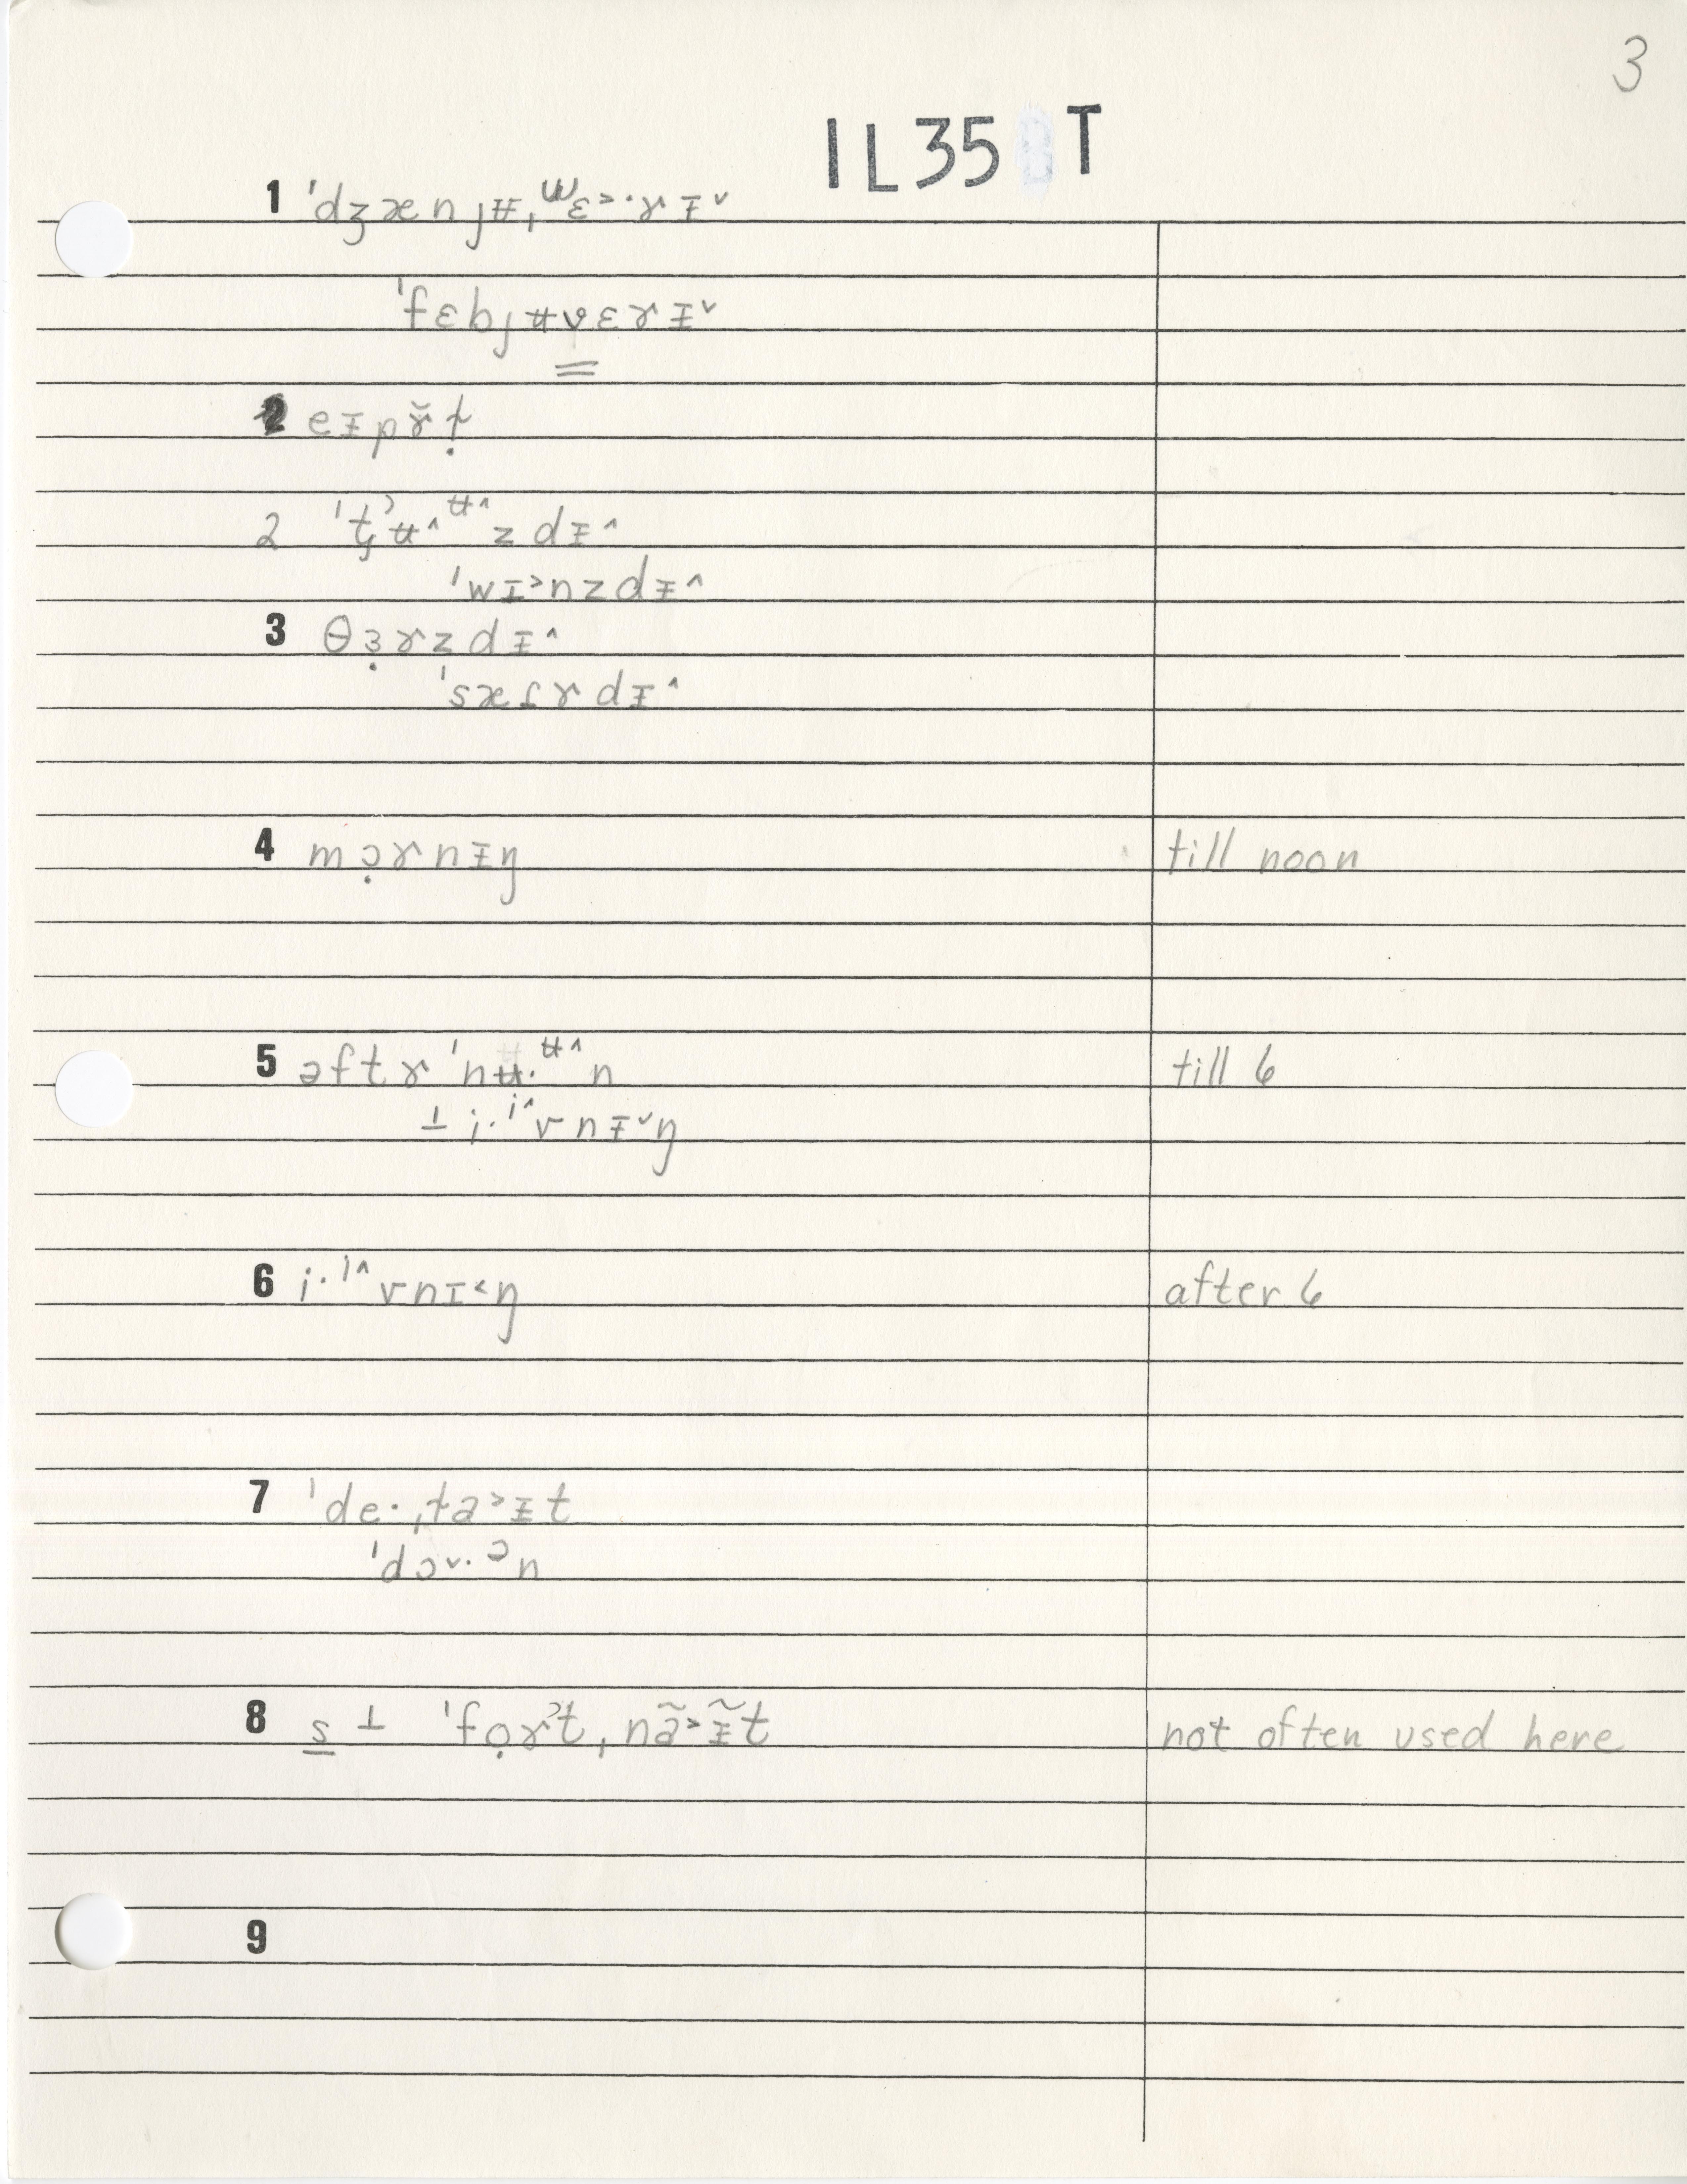 3
IL35 T
1 ˈdʒænjʉ,ʷɛ˃·ɤɪ̵ˇ
ˈfɛbjʉvɛɤɪ̵ˇ
2 eɪ̵pɤ̆ɫ̣
2 ˈt̬ʾʉ^ʉ^zdɪ̵^
ˈwɪ˃nzdɪ̵^
3 θɜ̣ɤzdɪ̵^
ˈsætɤdɪ̵^
4 mɔ̣ɤnɪ̵ŋ till noon
5 əftɤ ˈnʉ·ʉ^n till 6
⊥ i·i^vnɪ̵ˇŋ
6 i·i^vnɪ˂ŋ after 6
7 ˈde·ˌɫa˃ɪ̵t
ˈdɔˇ·ɔn
8 s ⊥ ˈfọɤʾt,nã˃ɪ̵̃t not often used here
9